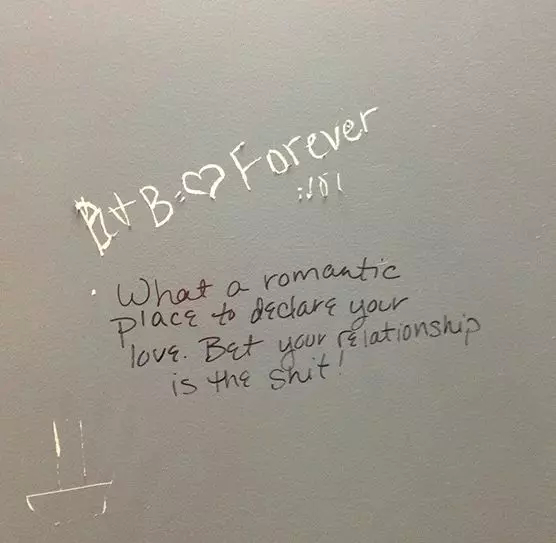 B+B=♡Forever
What a romantic
place to declare your
love. Bet your relationship
is the shit!